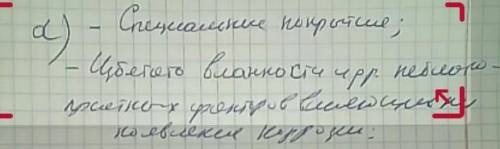 d) - Специальные покрытие;
- Избегать влажности и др. неблаго-
приятных факторов влияющих на
появление коррозии.